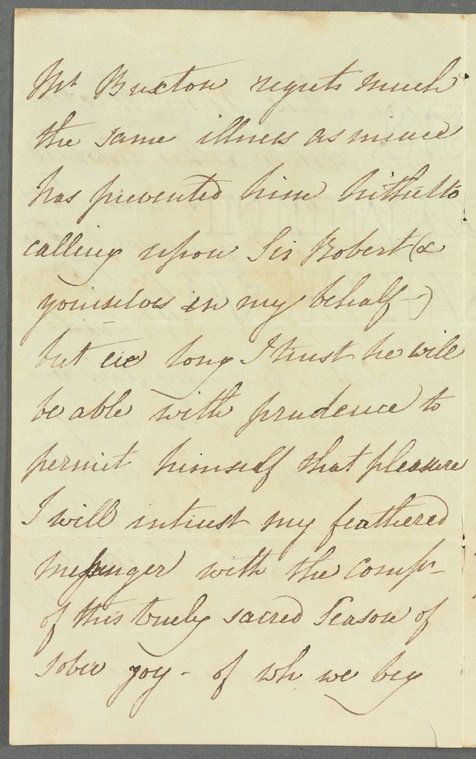 Mr. Buxton regrets much
the same illness as mine
has prevented him hitherto
calling upon Sir Robert (&
yourselves in my behalf -)
but ere long I trust he will
be able with prudence to
permit himself that pleasure
I will intrust my feathered
messenger with the Compts-
of this truely sacred Season of
sober joy - of wh we beg